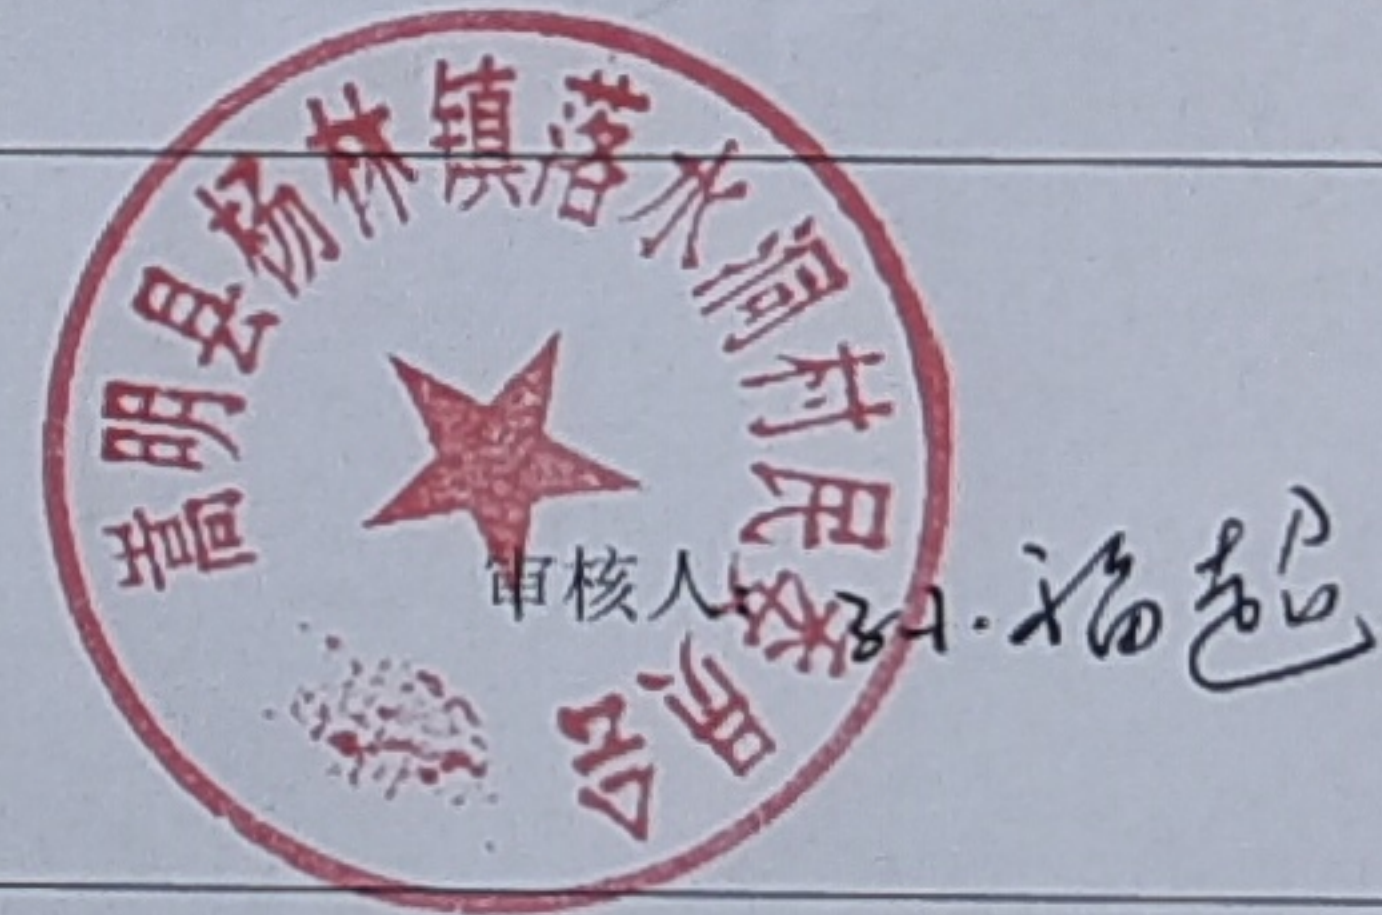 嵩明县杨林镇落水洞村民委员会
审核人: 孙福超